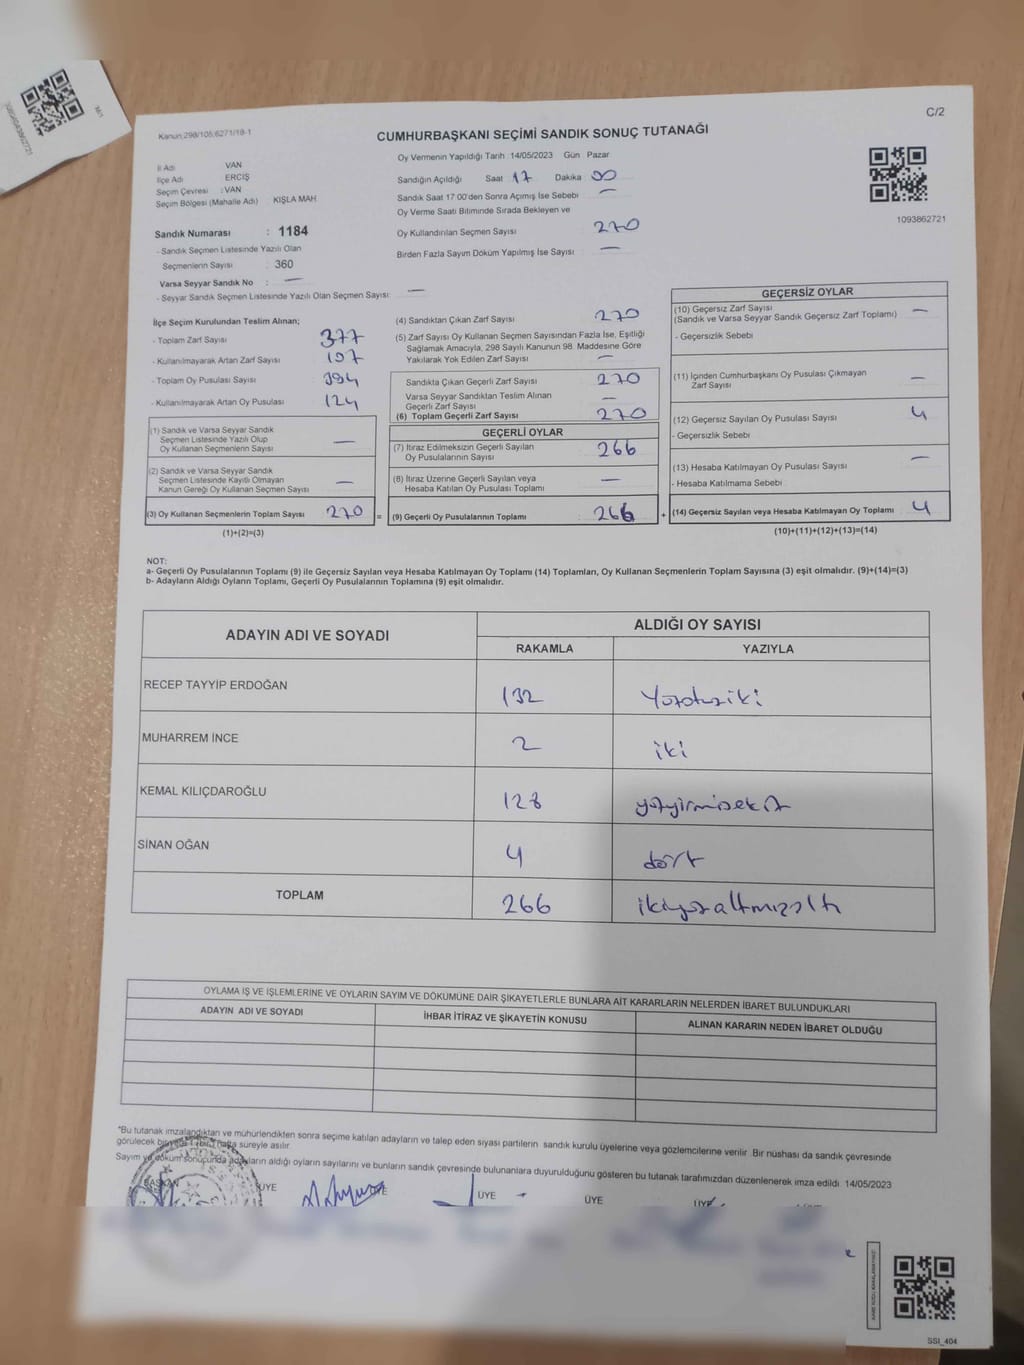 C/2
Kanun:298/105;6271/19-1
CUMHURBAŞKANI SEÇİMİ SANDIK SONUÇ TUTANAĞI
1093862721
İl Adı VAN
İlçe Adı ERCİŞ
Seçim Çevresi : VAN
Seçim Bölgesi (Mahalle Adı) KIŞLA MAH
Sandık Numarası : 1184
- Sandık Seçmen Listesinde Yazılı Olan
Seçmenlerin Sayısı : 360
Varsa Seyyar Sandık No : —
- Seyyar Sandık Seçmen Listesinde Yazılı Olan Seçmen Sayısı: —
Oy Vermenin Yapıldığı Tarih : 14/05/2023 Gün : Pazar
Sandığın Açıldığı Saat 17 Dakika 00
Sandık Saat 17:00'den Sonra Açımış İse Sebebi —
Oy Verme Saati Bitiminde Sırada Bekleyen ve
Oy Kullandırılan Seçmen Sayısı 270
Birden Fazla Sayım Döküm Yapılmış İse Sayısı —
İlçe Seçim Kurulundan Teslim Alınan;
- Toplam Zarf Sayısı 377
- Kullanılmayarak Artan Zarf Sayısı 107
- Toplam Oy Pusulası Sayısı 394
- Kullanılmayarak Artan Oy Pusulası 124
(1) Sandık ve Varsa Seyyar Sandık
Seçmen Listesinde Yazılı Olup
Oy Kullanan Seçmenlerin Sayısı —
(2) Sandık ve Varsa Seyyar Sandık
Seçmen Listesinde Kayıtlı Olmayan
Kanun Gereği Oy Kullanan Seçmen Sayısı —
(3) Oy Kullanan Seçmenlerin Toplam Sayısı 270 =
(1)+(2)=(3)
(4) Sandıktan Çıkan Zarf Sayısı 270
(5) Zarf Sayısı Oy Kullanan Seçmen Sayısından Fazla İse, Eşitliği
Sağlamak Amacıyla, 298 Sayılı Kanunun 98. Maddesine Göre
Yakılarak Yok Edilen Zarf Sayısı —
Sandıkta Çıkan Geçerli Zarf Sayısı 270
Varsa Seyyar Sandıktan Teslim Alınan
Geçerli Zarf Sayısı —
(6) Toplam Geçerli Zarf Sayısı 270
GEÇERLİ OYLAR
(7) İtiraz Edilmeksizin Geçerli Sayılan
Oy Pusulalarının Sayısı 266
(8) İtiraz Üzerine Geçerli Sayılan veya
Hesaba Katılan Oy Pusulası Toplamı —
(9) Geçerli Oy Pusulalarının Toplamı 266 +
GEÇERSİZ OYLAR
(10) Geçersiz Zarf Sayısı
(Sandık ve Varsa Seyyar Sandık Geçersiz Zarf Toplamı) —
- Geçersizlik Sebebi
(11) İçinden Cumhurbaşkanı Oy Pusulası Çıkmayan
Zarf Sayısı —
(12) Geçersiz Sayılan Oy Pusulası Sayısı 4
- Geçersizlik Sebebi
(13) Hesaba Katılmayan Oy Pusulası Sayısı —
- Hesaba Katılmama Sebebi
(14) Geçersiz Sayılan veya Hesaba Katılmayan Oy Toplamı 4
(10)+(11)+(12)+(13)=(14)
NOT:
a- Geçerli Oy Pusulalarının Toplamı (9) ile Geçersiz Sayılan veya Hesaba Katılmayan Oy Toplamı (14) Toplamları, Oy Kullanan Seçmenlerin Toplam Sayısına (3) eşit olmalıdır. (9)+(14)=(3)
b- Adayların Aldığı Oyların Toplamı, Geçerli Oy Pusulalarının Toplamına (9) eşit olmalıdır.
ADAYIN ADI VE SOYADI ALDIĞI OY SAYISI
RAKAMLA YAZIYLA
RECEP TAYYİP ERDOĞAN 132 Yüzotuziki
MUHARREM İNCE 2 iki
KEMAL KILIÇDAROĞLU 128 yüzyirmisekiz
SİNAN OĞAN 4 dört
TOPLAM 266 ikiyüzaltmışaltı
OYLAMA İŞ VE İŞLEMLERİNE VE OYLARIN SAYIM VE DÖKÜMÜNE DAİR ŞİKAYETLERLE BUNLARA AİT KARARLARIN NELERDEN İBARET BULUNDUKLARI
ADAYIN ADI VE SOYADI İHBAR İTİRAZ VE ŞİKAYETİN KONUSU ALINAN KARARIN NEDEN İBARET OLDUĞU
*Bu tutanak imzalandıktan ve mühürlendikten sonra seçime katılan adayların ve talep eden siyasi partilerin sandık kurulu üyelerine veya gözlemcilerine verilir. Bir nüshası da sandık çevresinde
görülecek bir yerde 1 bir hafta süreyle asılır.
Sayım ve döküm sonucunda adayların aldığı oyların sayılarını ve bunların sandık çevresinde bulunanlara duyurulduğunu gösteren bu tutanak tarafımızdan düzenlenerek imza edildi. 14/05/2023
BAŞKAN ÜYE ÜYE ÜYE ÜYE ÜYE
SSI_404